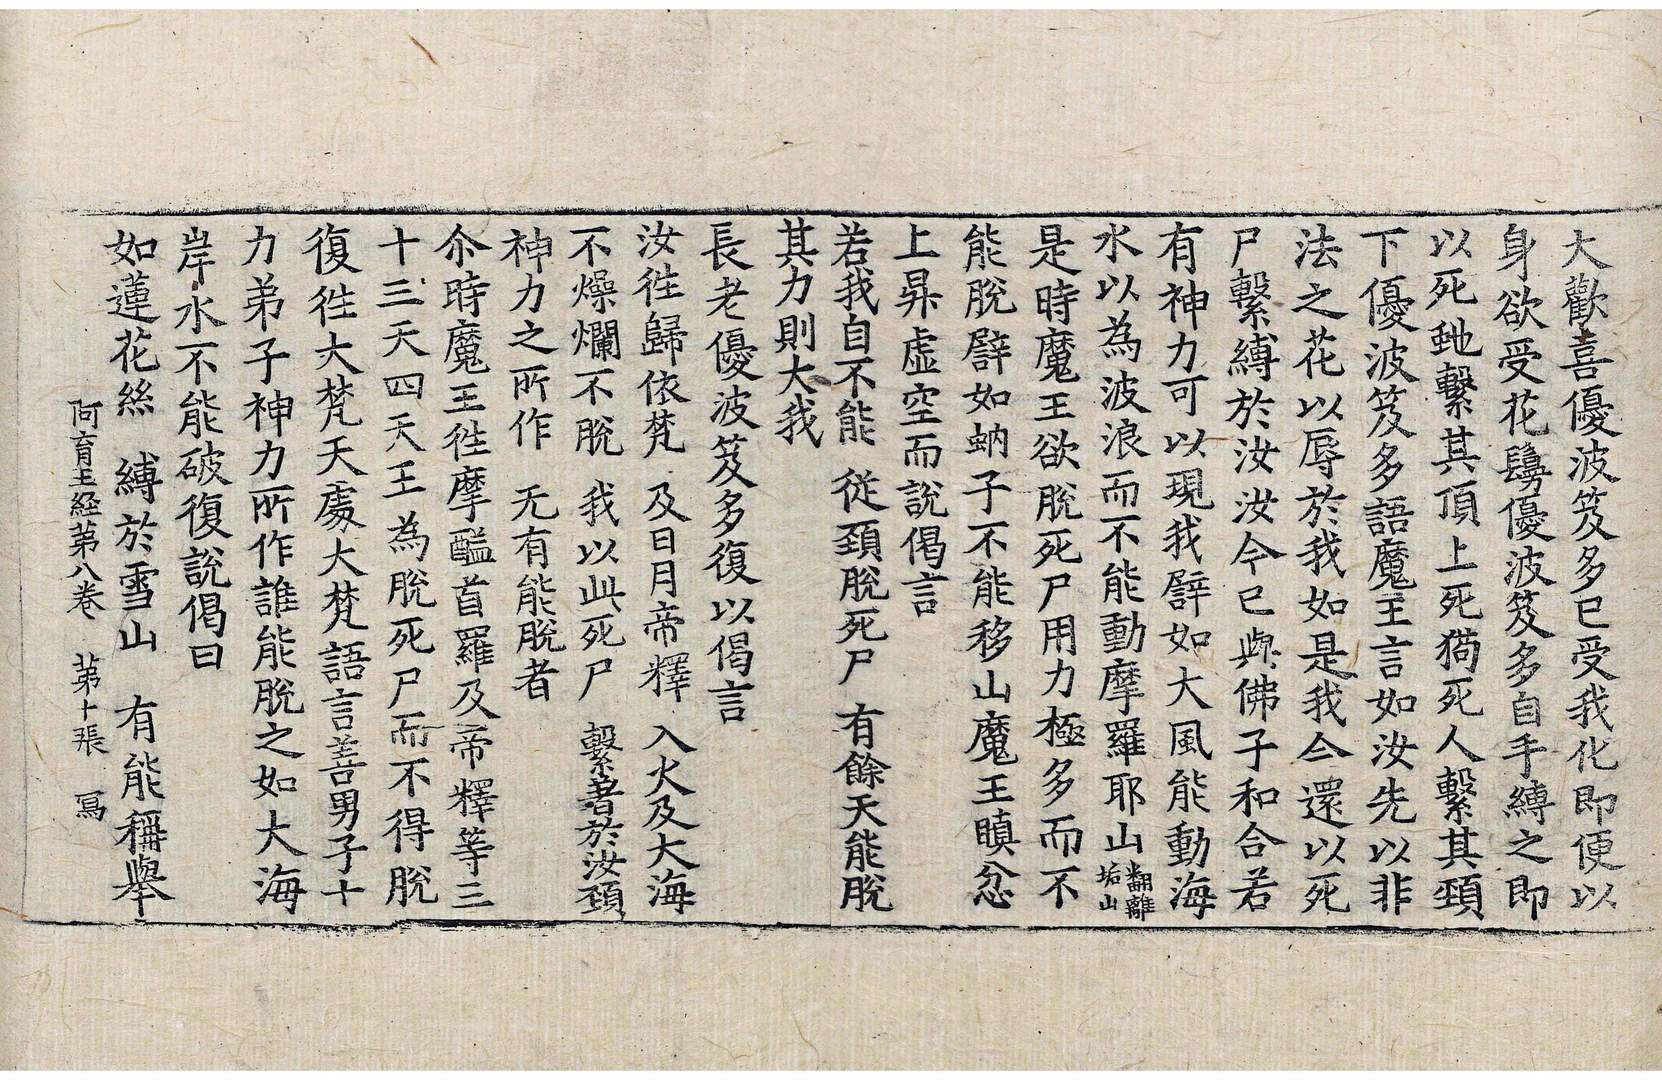 大歡喜優波笈多已受我化即便以
身欲受花鬘優波笈多自手縛之即
以死虵繫其頂上死狗死人繫其頸
下優波笈多語魔王言如汝先以非
法之花以辱於我如是我今還以死
尸繫縛於汝汝今已與佛子和合若
有神力可以現我譬如大風能動海
水以為波浪而不能動摩羅耶山翻離垢山
是時魔王欲脫死尸用力極多而不
能脫譬如蚋子不能移山魔王瞋忿
上昇虛空而說偈言
若我自不能　從頸脫死尸　有餘天能脫
其力則大我
長老優波笈多復以偈言
汝徃歸依梵　及日月帝釋　入火及大海
不燥爛不脫　我以此死尸　繫著於汝頸
神力之所作　无有能脫者
尒時魔王徃摩醯首羅及帝釋等三
十三天四天王為脫死尸而不得脫
復徃大梵天處大梵語言善男子十
力弟子神力所作誰能脫之如大海
岸水不能破復說偈曰
如蓮花絲　縛於雪山　有能稱舉
阿育王経第八卷　第十張　冩